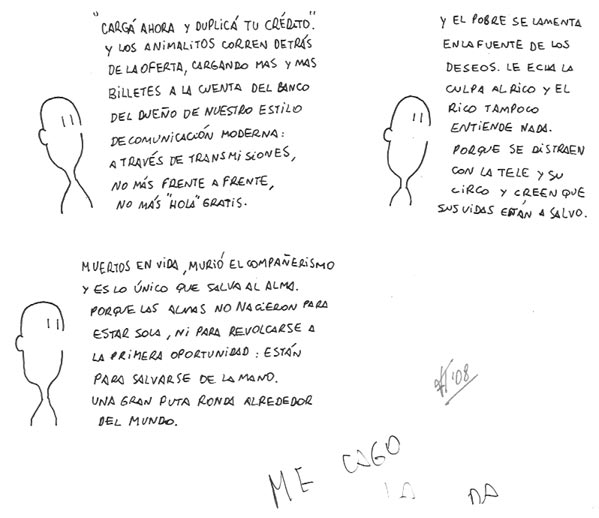 "CARGÁ AHORA Y DUPLICÁ TU CRÉDITO".
Y LOS ANIMALITOS CORREN DETRÁS
DE LA OFERTA, CARGANDO MAS Y MAS
BILLETES A LA CUENTA DEL BANCO
DEL DUEÑO DE NUESTRO ESTILO
DE COMUNICACIÓN MODERNA:
A TRAVÉS DE TRANSMISIONES,
NO MÁS FRENTE A FRENTE,
NO MÁS "HOLA" GRATIS.
Y EL POBRE SE LAMENTA
EN LA FUENTE DE LOS
DESEOS. LE ECHA LA
CULPA AL RICO Y EL
RICO TAMPOCO
ENTIENDE NADA.
PORQUE SE DISTRAEN
CON LA TELE Y SU
CIRCO Y CREEN QUE
SUS VIDAS ESTÁN A SALVO.
MUERTOS EN VIDA, MURIÓ EL COMPAÑERISMO
Y ES LO ÚNICO QUE SALVA AL ALMA.
PORQUE LAS ALMAS NO NACIERON PARA
ESTAR SOLA, NI PARA REVOLCARSE A
LA PRIMERA OPORTUNIDAD: ESTÁN
PARA SALVARSE DE LA MANO.
UNA GRAN PUTA RONDA ALREDEDOR
DEL MUNDO.
'08
ME CAGO
LA